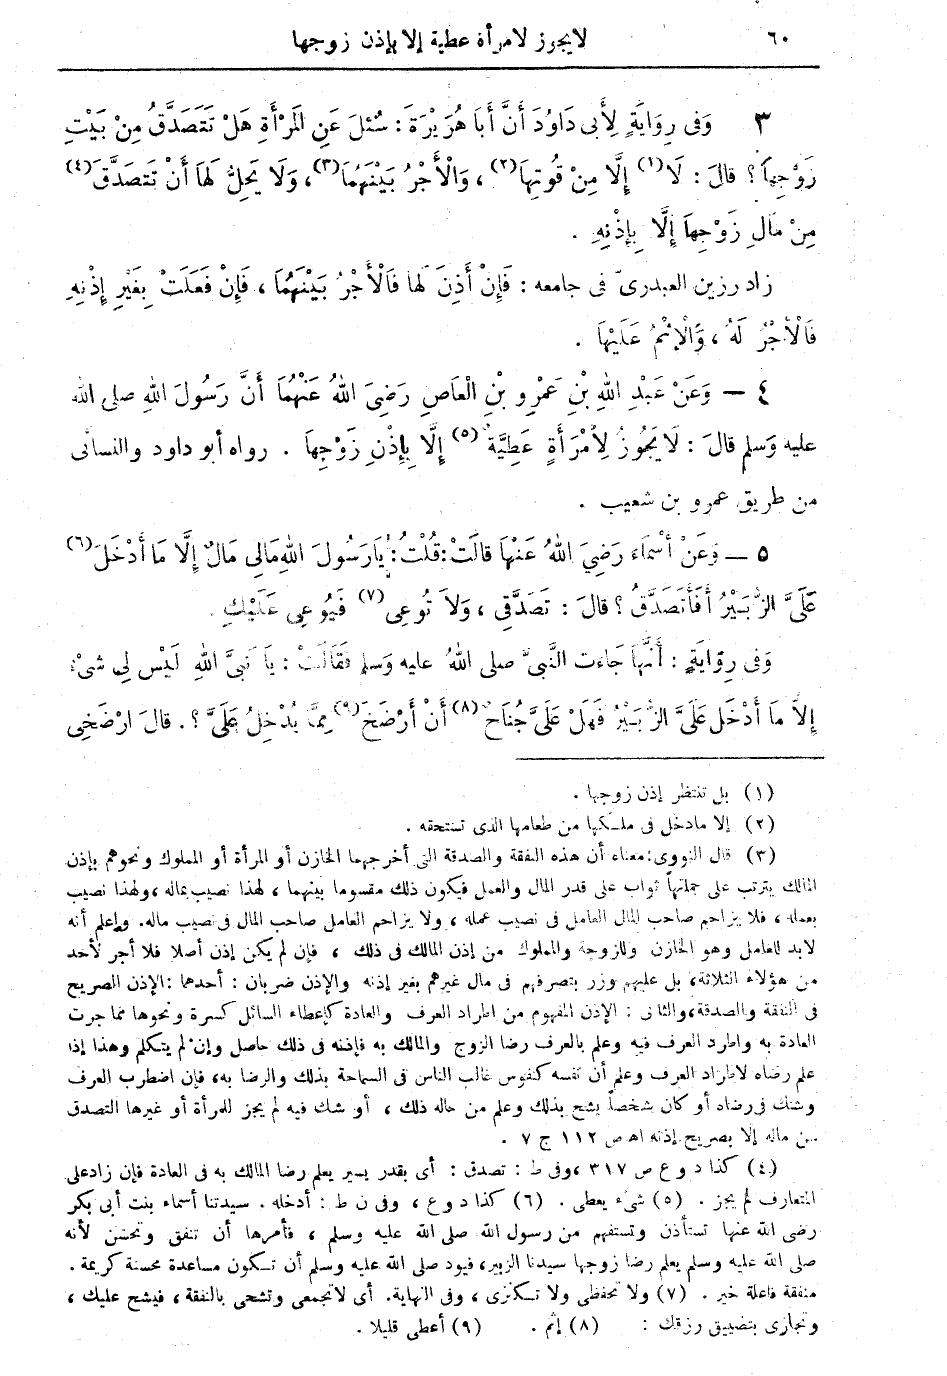 ٦٠ لا يجوز لامرأة عطية إلا بإذن زوجها
٣ وَفى رِوَايَةٍ لِأَبى دَاوُدَ أَنَّ أَبَا هُرَيْرَةَ : سُئِلَ عَنِ المَرْأَةِ هَلْ تَتَصَدَّقُ مِنْ بَيْتِ
زَوْجِهَا ؟ قالَ : لَا (١) إِلَّا مِنْ قُوتِهَا (٢) ، وَالْأَجْرُ بَيْنَهُمَا (٣) ، وَلَا يَحِلُّ لَهَا أَنْ تَتَصَدَّقَ (٤)
مِنْ مَالِ زَوْجِهَا إِلَّا بِإِذْنِهِ .
زاد رزين العبدرىّ فى جامعه : فَإِنْ أَذِنَ لَهَا فَالْأَجْرُ بَيْنَهُمَا ، فَإِنْ فَعَلَتْ بِغَيْرِ إِذْنِهِ
فَالْأَجْرُ لَهُ ، وَالْإِثْمُ عَلَيْهَا .
٤ — وَعَنْ عَبْدِ اللهِ بْنِ عَمْرِو بْنِ الْعَاصِ رَضِىَ اللهُ عَنْهُمَا أَنَّ رَسُولَ اللهِ صلى الله
عليه وَسلم قالَ : لَا يَجُوزُ لِأَمْرَأَةٍ عَطِيَّةٌ (٥) إِلَّا بِإِذْنِ زَوْجِهَا . رواه أبو داود والنسائى
من طريق عمرو بن شعيب .
٥ — وَعَنْ أَسْمَاءَ رَضِىَ اللهُ عَنْهَا قالَتْ : قُلْتُ : يَا رَسُولَ اللهِ مَالِى مَالٌ إِلَّا مَا أَدْخَلَ (٦)
عَلَىَّ الزُّبَيْرُ أَفَأَتَصَدَّقُ ؟ قالَ : تَصَدَّقِى ، وَلَا تُوعِى (٧) فَيُوعِى عَلَيْكِ .
وَفى رِوَايَةٍ : أَنَّهَا جَاءَت النَّبىَّ صلى اللهُ عليه وسلم فَقَالَتْ : يَا نَبِىَّ اللهِ لَيْسَ لِى شىْءٌ
إِلَّا مَا أَدْخَلَ عَلَىَّ الزُّبَيْرُ فَهَلْ عَلَىَّ جُنَاحٌ (٨) أَنْ أَرْضَخَ (٩) مِمَّا يُدْخِلُ عَلَىَّ ؟ . قالَ ارْضَخِى
(١) بل تنتظر إذن زوجها .
(٢) إلا مادخل فى ملكها من طعامها الذى تستحقه .
(٣) قال النووى : معناه أن هذه النفقة والصدقة التى أخرجهما الخازن أو المرأة أو المملوك ونحوهم بإذن
المالك يترتب على جملتها ثواب على قدر المال والعمل فيكون ذلك مقسوما بينهما ، لهذا نصيب بماله ، ولهذا نصيب
بعمله ، فلا يزاحم صاحب المال العامل فى نصيب عمله ، ولا يزاحم العامل صاحب المال فى نصيب ماله. واعلم أنه
لابد للعامل وهو الخازن وللزوجة والمملوك من إذن المالك فى ذلك ، فإن لم يكن إذن أصلا فلا أجر لأحد
من هؤلاء الثلاثة، بل عليهم وزر بتصرفهم فى مال غيرهم بغير إذنه والإذن ضربان : أحدهما : الإذن الصريح
فى النفقة والصدقة، والثانى : الإذن المفهوم من اطراد العرف والعادة كإعطاء السائل كسرة ونحوها مما جرت
العادة به واطرد العرف فيه وعلم بالعرف رضا الزوج والمالك به فإذنه فى ذلك حاصل وإن لم يتكلم وهذا إذا
علم رضاه لاطراد العرف وعلم أن نفسه كنفوس غالب الناس فى السماحة بذلك والرضا به، فإن اضطرب العرف
وشك فى رضاه أو كان شخصاً يشح بذلك وعلم من حاله ذلك ، أو شك فيه لم يجز للمرأة أو غيرها التصدق
من ماله إلا بصريح إذنه اهـ ص ١١٢ ج ٧ .
(٤) كذا د و ع ص ٣١٧ ، وفى ط : تصدق : أى بقدر يسير يعلم رضا المالك به فى العادة فإن زاد على
المتعارف لم يجز . (٥) شىء يعطى . (٦) كذا د و ع ، وفى ن ط : أدخله . سيدتنا أسماء بنت أبى بكر
رضى الله عنها تستأذن وتستفهم من رسول الله صلى الله عليه وسلم ، فأمرها أن تنفق وتحسن لأنه
صلى الله عليه وسلم يعلم رضا زوجها سيدنا الزبير، فيود صلى الله عليه وسلم أن تكون مساعدة محسنة كريمة .
منفقة فاعلة خير . (٧) ولا تحفظى ولا تكنزى ، وفى النهاية. أى لاتجمعى وتشحى بالنفقة ، فيشح عليك ،
وتجازى بتضييق رزقك : (٨) إثم . (٩) أعطى قليلا .